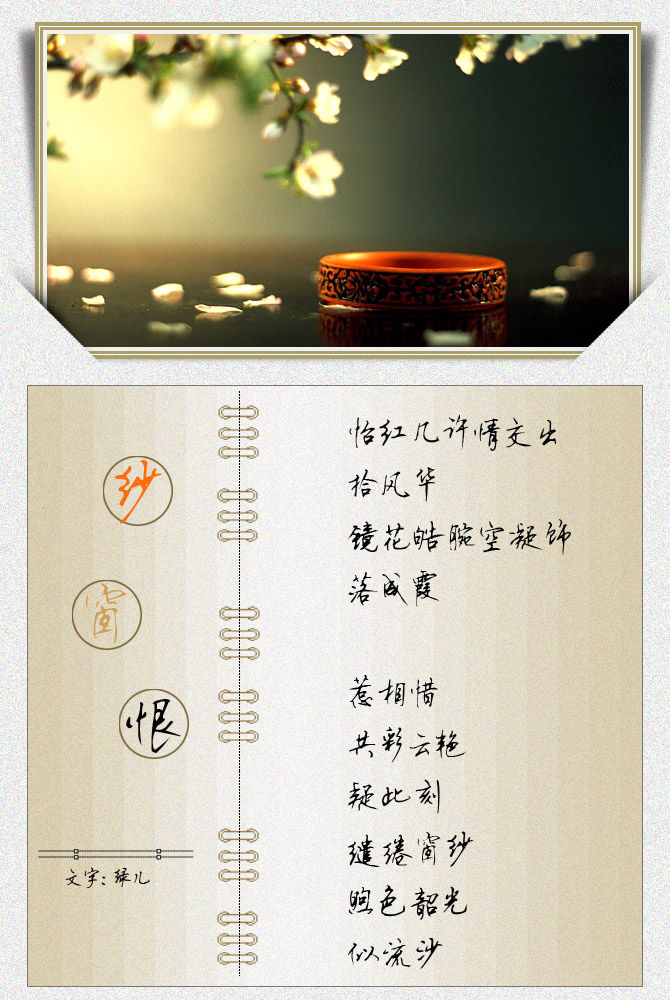 纱
窗
恨
文字：绿儿
怡红几许情交出
拾风华
镜花皓腕空凝饰
落成霞
惹相惜
共彩云艳
疑此刻
缱绻窗纱
煦色韶光
似流沙